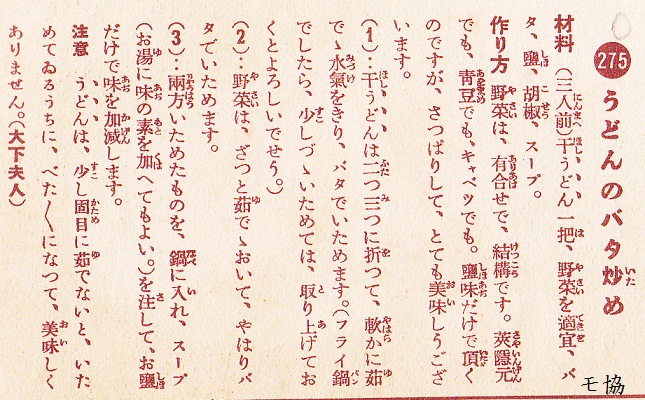 275 うどんのバタ炒め
材料 (三人前)干うどん一把、野菜を適宜、バ
タ、鹽、胡椒、スープ。
作り方 野菜は、有合せで、結構です。莢隱元
でも、青豆でも、キャベツでも。鹽味だけで頂く
のですが、さつぱりして、とても美味しうござ
います。
(1)…干うどんは二つ三つに折つて、軟かに茹
でゝ水氣をきり、バタでいためます。(フライ鍋
でしたら、少しづゝいためては、取り上げてお
くとよろしいでせう。)
(2)…野菜は、ざつと茹でゝおいて、やはりバ
タでいためます。
(3)…兩方いためたものを、鍋に入れ、スープ
(お湯に味の素を加へてもよい。)を注して、お鹽
だけで味を加減します。
注意 うどんは、少し固目に茹でないと、いた
めてゐるうちに、べた〳〵になつて、美味しく
ありません。(大下夫人)
モ協